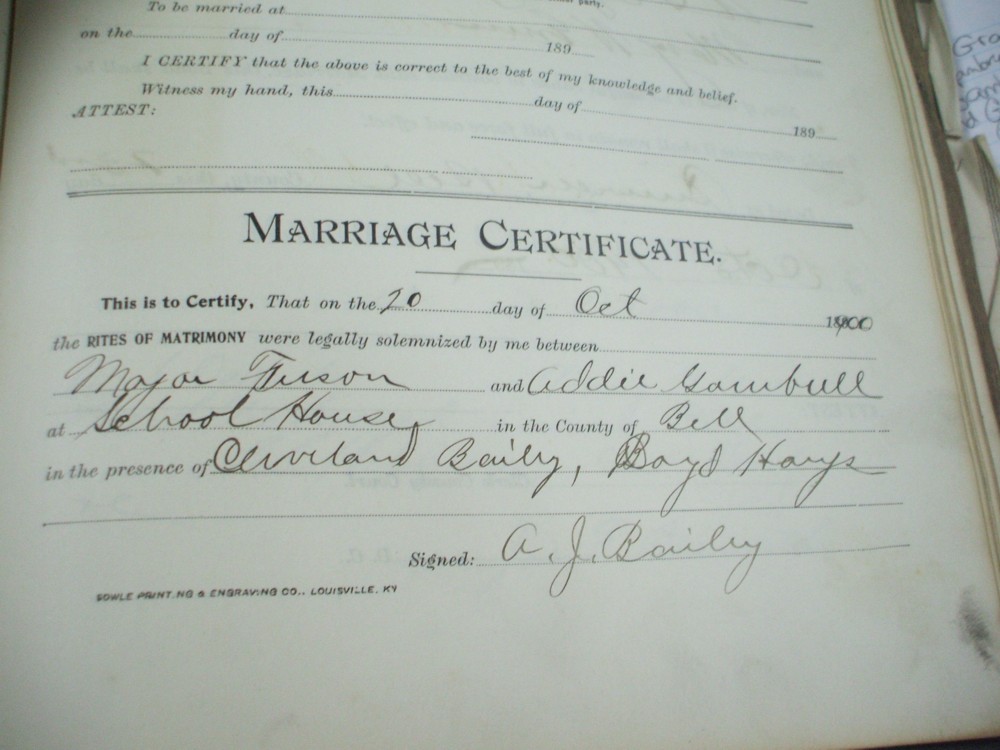 To be married at
on the day of 189
I CERTIFY that the above is correct to the best of my knowledge and belief.
Witness my hand, this day of 189
ATTEST:
MARRIAGE CERTIFICATE.
This is to Certify, That on the 20 day of Oct 1900
the RITES OF MATRIMONY were legally solemnized by me between
Major Fuson and Addie Gambrell
at School House, in the County of Bell
in the presence of Cleveland Baily, Boyd Hays
Signed: A. J. Baily
SOWLE PRINTING & ENGRAVING CO., LOUISVILLE, KY